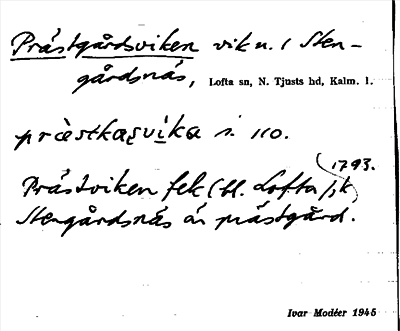 Prästgårdsviken vik n. i Sten-
gårdsnäs, Lofta sn, N. Tjusts hd, Kalm. l.
prästkasvika s. 110.
1793.
Prästviken fek (bl. Lofta sk)
Stengårdsnäs är prästgård.
Ivar Modéer 1945